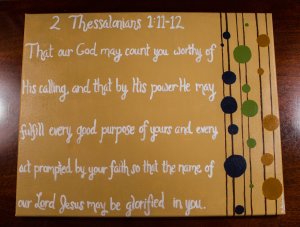 2 Thessalonians 1:11-12
That our God may count you worthy of
His calling, and that by His power He may
fulfill every good purpose of yours and every
act prompted by your faith so that the name of
our Lord Jesus may be glorified in you..